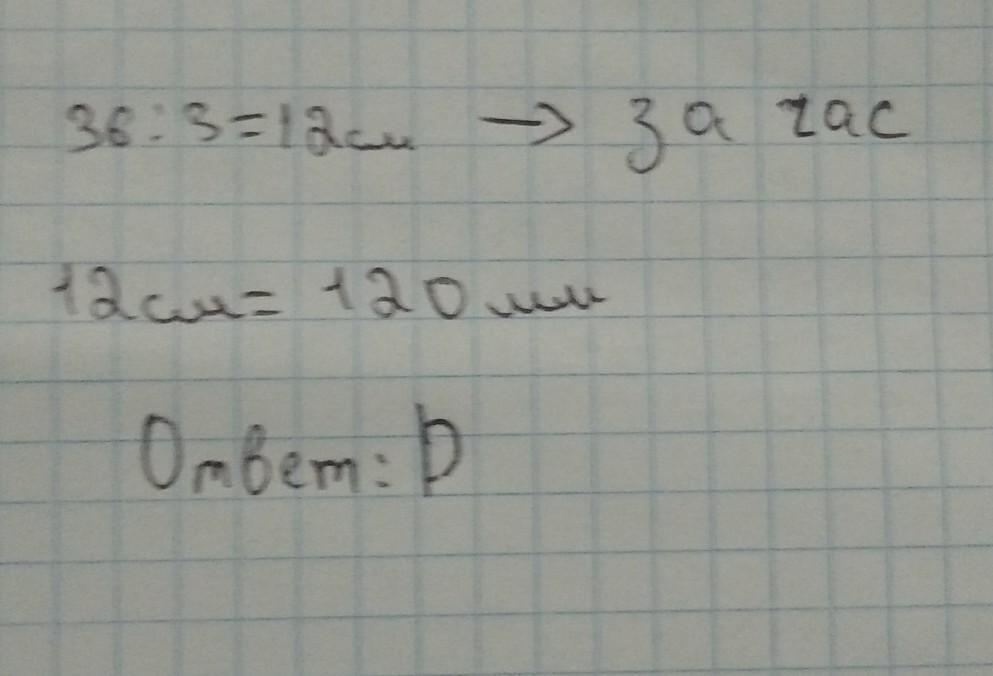 36:3=12см → за час
12см=120мм
Ответ: D